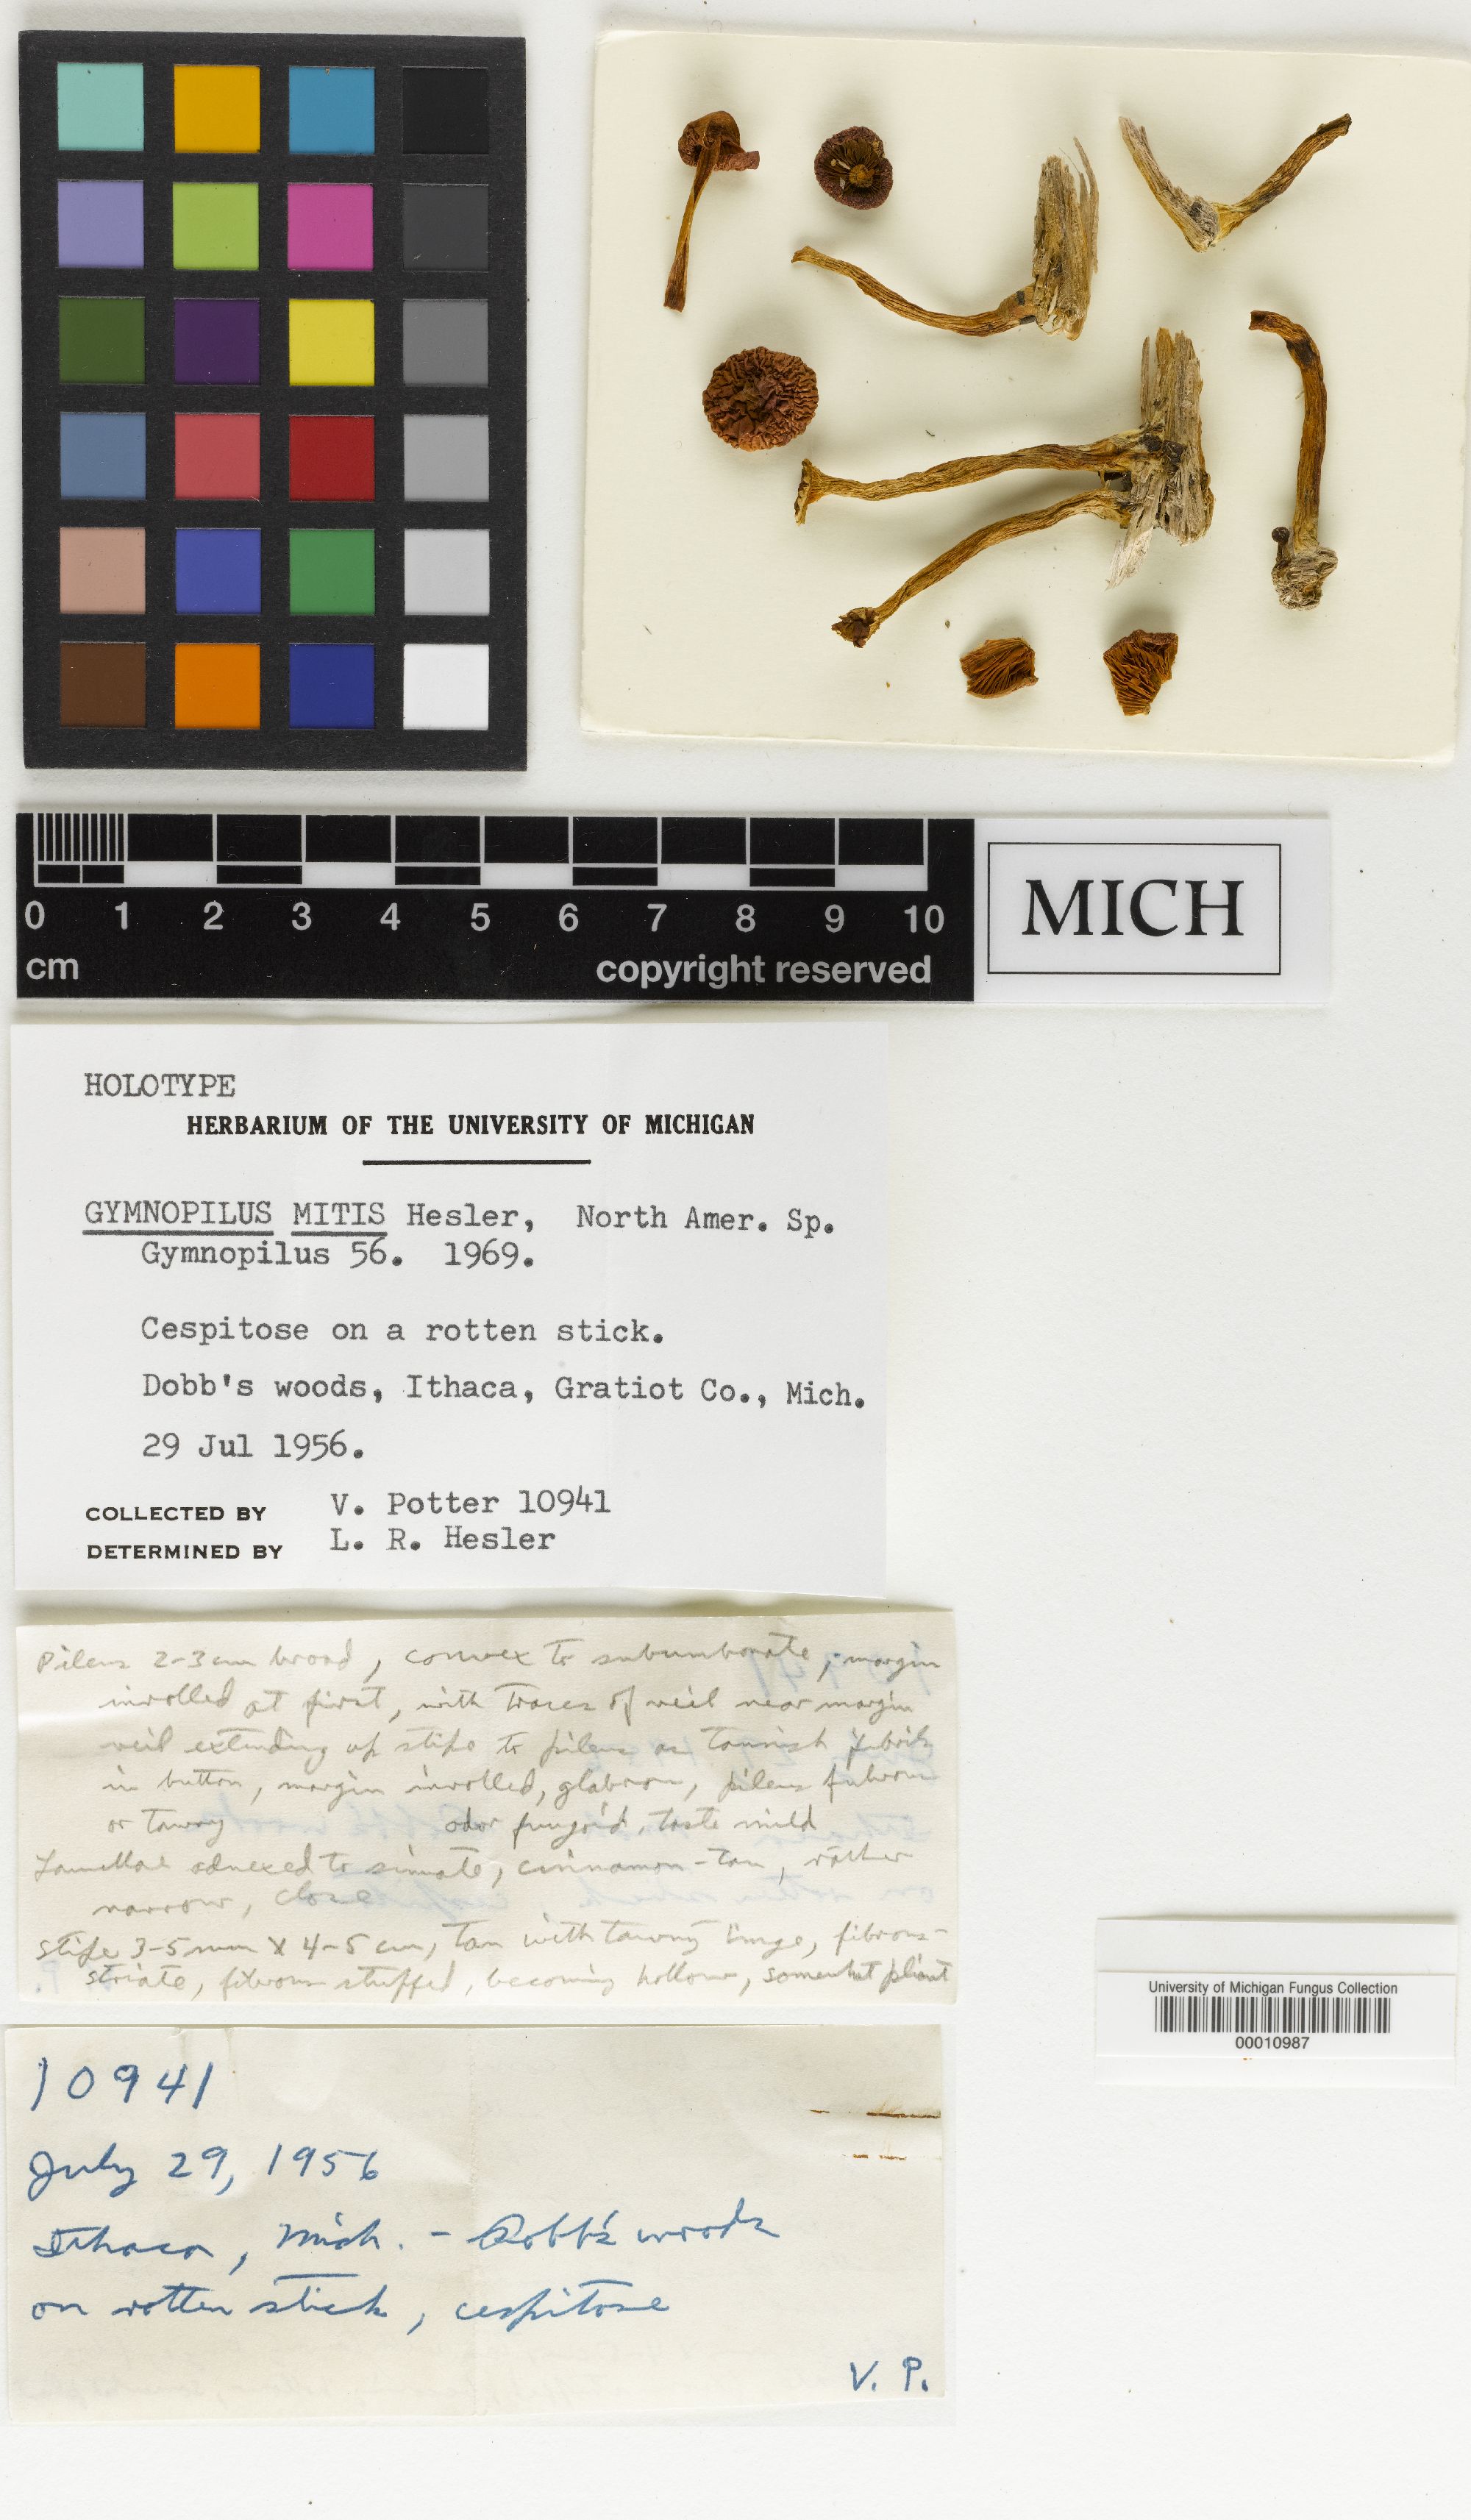 0 1 2 3 4 5 6 7 8 9 10
cm copyright reserved
MICH
HOLOTYPE
HERBARIUM OF THE UNIVERSITY OF MICHIGAN
GYMNOPILUS MITIS Hesler, North Amer. Sp.
Gymnopilus 56. 1969.
Cespitose on a rotten stick.
Dobb's woods, Ithaca, Gratiot Co., Mich.
29 Jul 1956.
COLLECTED BY V. Potter 10941
DETERMINED BY L. R. Hesler
Pileus 2-3 cm broad, convex to subumbonate, margin
inrolled at first, with traces of veil near margin
veil extending up stipe to pileus as tannish fibrils
in button, margin inrolled, glabrous, pileus fulvous
or tawny odor fungoid, taste mild
Lamellae adnexed to sinuate, cinnamon-tan, rather
narrow, close
stipe 3-5 mm X 4-5 cm, tan with tawny tinge, fibrous-
striate, fibrous stuffed, becoming hollow, somewhat pliant
University of Michigan Fungus Collection
00010987
10941
July 29, 1956
Ithaca, Mich. - Dobb's woods
on rotten stick, cespitose
V. P.